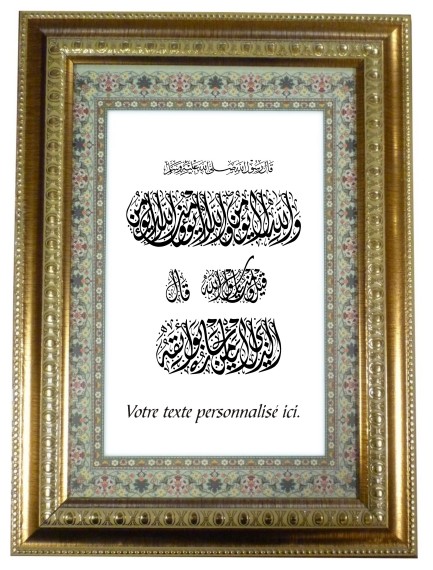 قال رسول الله صلى الله عليه وسلم
والله لا يؤمن والله لا يؤمن والله لا يؤمن
قيل من يا رسول الله قال
الذي لا يأمن جاره بوائقه
Votre texte personnalisé ici.